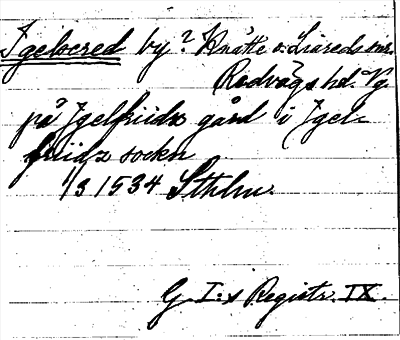 Igelsered by? Knätte o. Liareds snr.
Redvägs hd. Vg.
på Jgelfriidz gård i Jgel-
friidz sockn
1/3 1534 Sthlm.
G. I:s Registr. IX.